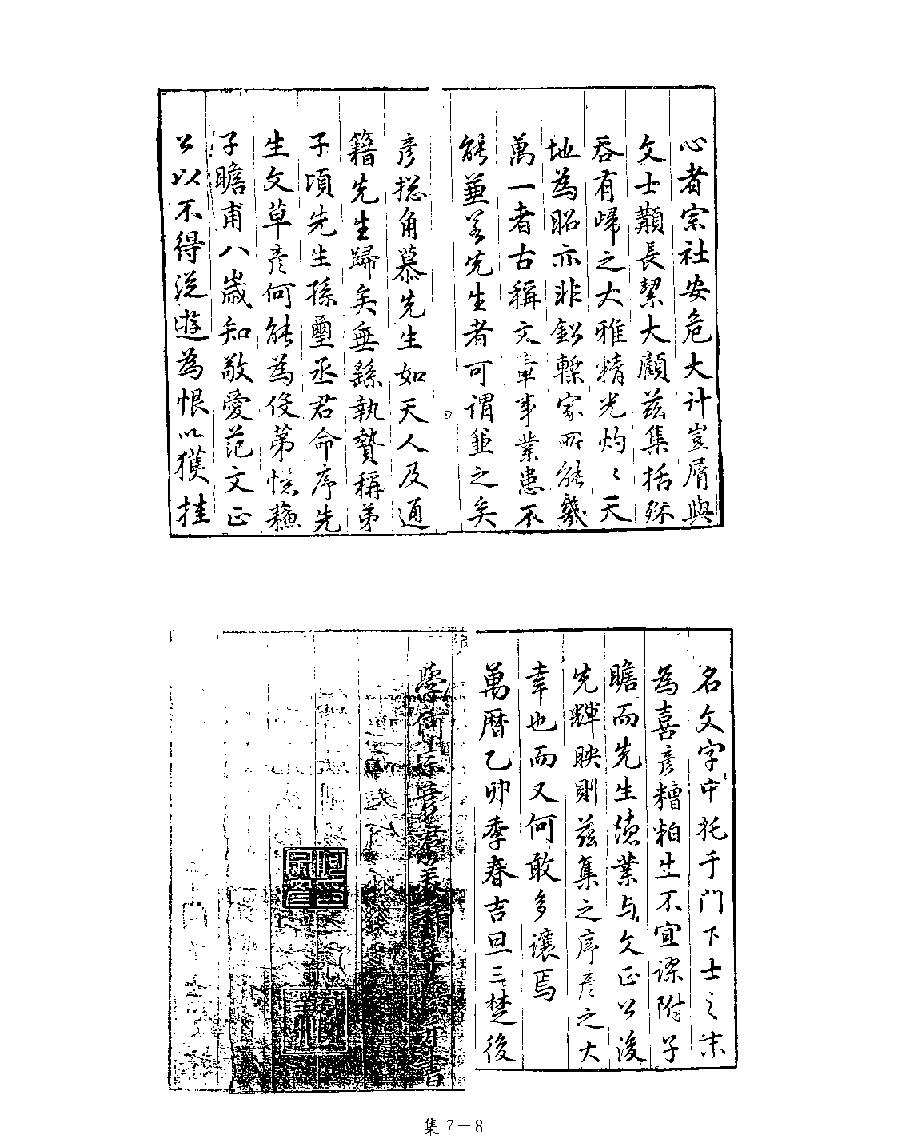 心者宗社安危大计豈屑與
文士顜長絜大顧兹集括綜
吞有歸之大雅精光灼〻天
地為昭亦非鉛槧家所能幾
萬一者古稱文章事業患不
能兼若先生者可謂兼之矣
彦總角慕先生如天人及通
籍先生歸矣無繇執贄稱弟
子頃先生孫璽丞君命序先
生文草彦何能為役第憶蘇
子瞻甫八歲知敬愛范文正
公以不得從遊為恨以獲挂
名文字中託于門下士之末
為喜彦糟粕士不宜謬附子
瞻而先生德業与文正公後
先輝映則兹集之序彦之大
幸也而又何敢多讓焉
萬曆乙卯季春吉旦三楚後
學何
書
集7-8